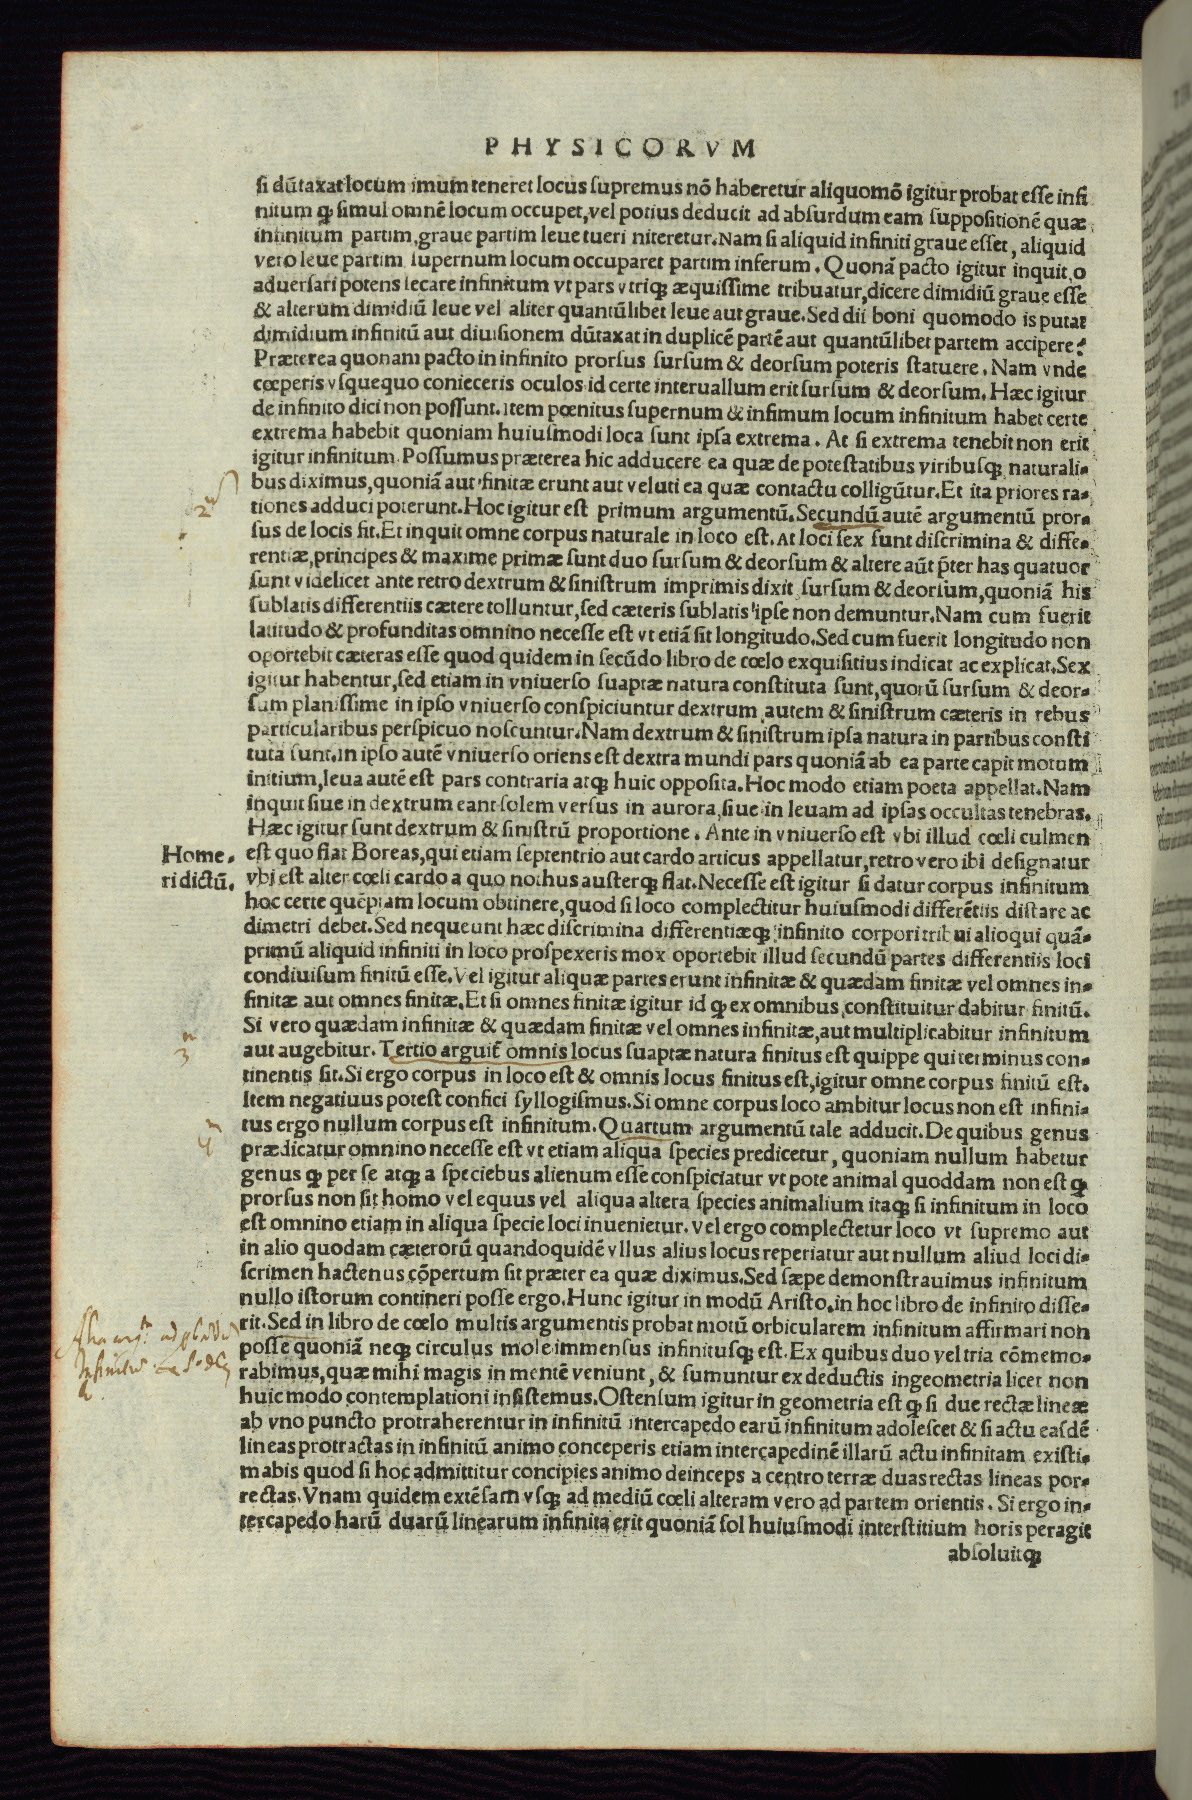 PHYSICORVM
si dūtaxat locum imum teneret locus supremus nō haberetur aliquomō igitur probat esse infi
nitum ꝙ simul omnē locum occupet, vel potius deducit ad absurdum eam suppositionē quæ
infinitum partim, graue partim leue tueri niteretur. Nam si aliquid infiniti graue esset, aliquid
vero leue partim supernum locum occuparet partim inferum. Quonā pacto igitur inquit o
aduersari potens secare infinitum vt pars vtriqꝫ æquissime tribuatur, dicere dimidiū graue esse
& alterum dimidiū leue vel aliter quantūlibet leue aut graue. Sed dii boni quomodo is putat
dimidium infinitū aut diuisionem dūtaxat in duplicē partē aut quantūlibet partem accipere?
Præterea quonam pacto in infinito prorsus sursum & deorsum poteris statuere. Nam vnde
cœperis vsquequo conieceris oculos id certe interuallum erit sursum & deorsum. Hæc igitur
de infinito dici non possunt. item pœnitus supernum & infimum locum infinitum habet certe
extrema habebit quoniam huiusmodi loca sunt ipsa extrema. At si extrema tenebit non erit
igitur infinitum. Possumus præterea hic adducere ea quæ de potestatibus viribusqꝫ naturali-
bus diximus, quoniā aut finitæ erunt aut veluti ea quæ contactu colligūtur. Et ita priores ra-
tiones adduci poterunt. Hoc igitur est primum argumentū. Secundū autē argumentū pror-
sus de locis fit. Et inquit omne corpus naturale in loco est. At loci sex sunt discrimina & diffe-
rentiæ, principes & maxime primæ sunt duo sursum & deorsum & altere aūt p̄ter has quatuor
sunt videlicet ante retro dextrum & sinistrum imprimis dixit sursum & deorsum, quoniā his
sublatis differentiis cætere tolluntur, sed cæteris sublatis ipse non demuntur. Nam cum fuerit
latitudo & profunditas omnino necesse est vt etiā sit longitudo. Sed cum fuerit longitudo non
oportebit cæteras esse quod quidem in secūdo libro de cœlo exquisitius indicat ac explicat. Sex
igitur habentur, sed etiam in vniuerso suaptæ natura constituta sunt, quorū sursum & deor-
sum planissime in ipso vniuerso conspiciuntur dextrum autem & sinistrum cæteris in rebus
particularibus perspicuo noscuntur. Nam dextrum & sinistrum ipsa natura in partibus consti
tuta sunt. in ipso autē vniuerso oriens est dextra mundi pars quoniā ab ea parte capit motum
initium, leua autē est pars contraria atqꝫ huic opposita. Hoc modo etiam poeta appellat. Nam
inquit siue in dextrum eant solem versus in aurora, siue in leuam ad ipsas occultas tenebras.
Hæc igitur sunt dextrum & sinistrū proportione. Ante in vniuerso est vbi illud cœli culmen
Home-
ri dictū.
est quo flat Boreas, qui etiam septentrio aut cardo articus appellatur, retro vero ibi designatur
vbi est alter cœli cardo a quo nothus austerqꝫ flat. Necesse est igitur si datur corpus infinitum
hoc certe quēpiam locum obtinere, quod si loco complectitur huiusmodi differētiis distare ac
dimetri debet. Sed nequeunt hæc discrimina differentiæqꝫ infinito corpori tribui alioqui quā-
primū aliquid infiniti in loco prospexeris mox oportebit illud secundū partes differentiis loci
condiuisum finitū esse. Vel igitur aliquæ partes erunt infinitæ & quædam finitæ vel omnes in-
finitæ aut omnes finitæ. Et si omnes finitæ igitur id ꝙ ex omnibus constituitur dabitur finitū.
Si vero quædam infinitæ & quædam finitæ vel omnes infinitæ, aut multiplicabitur infinitum
aut augebitur. Tertio arguit̄ omnis locus suaptæ natura finitus est quippe qui terminus con-
tinentis sit. Si ergo corpus in loco est & omnis locus finitus est, igitur omne corpus finitū est.
Item negatiuus potest confici syllogismus. Si omne corpus loco ambitur locus non est infini-
tus ergo nullum corpus est infinitum. Quartum argumentū tale adducit. De quibus genus
prædicatur omnino necesse est vt etiam aliqua species predicetur, quoniam nullum habetur
genus ꝙ per se atqꝫ a speciebus alienum esse conspiciatur vt pote animal quoddam non est ꝙ
prorsus non sit homo vel equus vel aliqua altera species animalium itaqꝫ si infinitum in loco
est omnino etiam in aliqua specie loci inuenietur. Vel ergo complectetur loco vt supremo aut
in alio quodam cæterorū quandoquidē vllus alius locus reperiatur aut nullum aliud loci di-
scrimen hactenus cōpertum sit præter ea quæ diximus. Sed sæpe demonstrauimus infinitum
nullo istorum contineri posse ergo. Hunc igitur in modū Aristo. in hoc libro de infinito disse-
rit. Sed in libro de cœlo multis argumentis probat motū orbicularem infinitum affirmari non
posse quoniā neqꝫ circulus mole immensus infinitusqꝫ est. Ex quibus duo vel tria cōmemo-
rabimus, quæ mihi magis in mentē veniunt, & sumuntur ex deductis in geometria licet non
huic modo contemplationi insistemus. Ostensum igitur in geometria est ꝙ si due rectæ lineæ
ab vno puncto protraherentur in infinitū intercapedo earū infinitum adolescet & si actu easdē
lineas protractas in infinitū animo conceperis etiam intercapedinē illarū actu infinitam existi-
mabis quod si hoc admittitur concipies animo deinceps a centro terræ duas rectas lineas por-
rectas. Vnam quidem extēsam vsqꝫ ad mediū cœli alteram vero ad partem orientis. Si ergo in-
tercapedo harū duarū linearum infinita erit quoniā sol huiusmodi interstitium horis peragit
absoluitqꝫ
2m
3m
4m